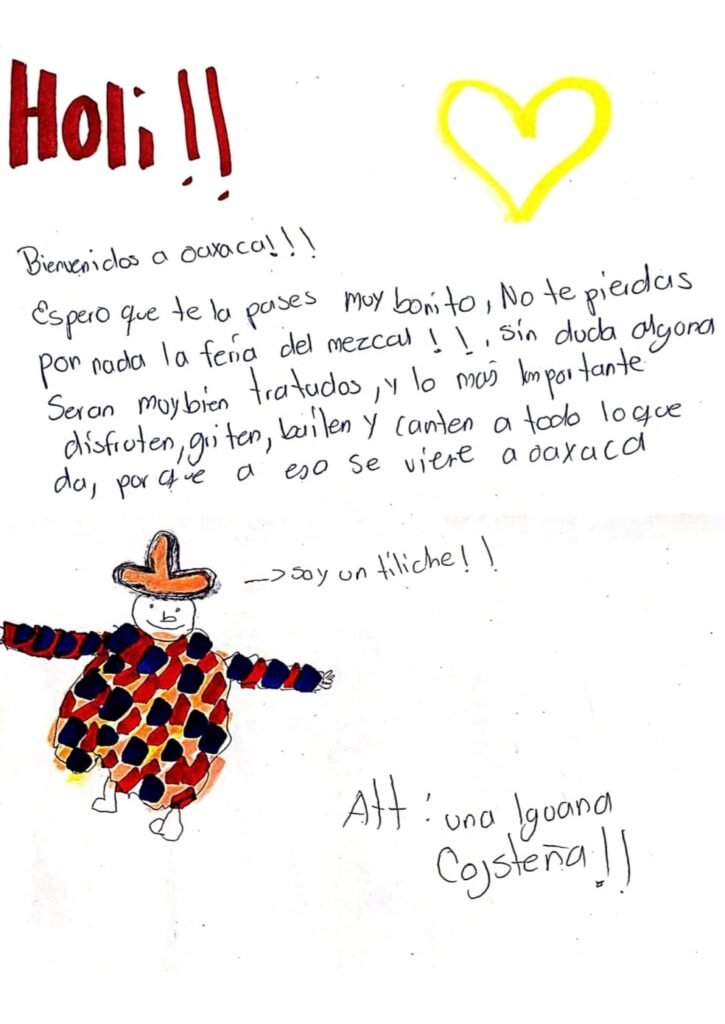 Holi!!
Bienvenidos a oaxaca!!!
Espero que te la pases muy bonito, No te pierdas
por nada la feria del mezcal !!, sin duda alguna
Seran muy bien tratados, y lo mas importante
disfruten, griten, bailen y canten a todo lo que
da, por que a eso se viene a oaxaca
-> soy un tiliche!!
Att : una Iguana
Costeña!!